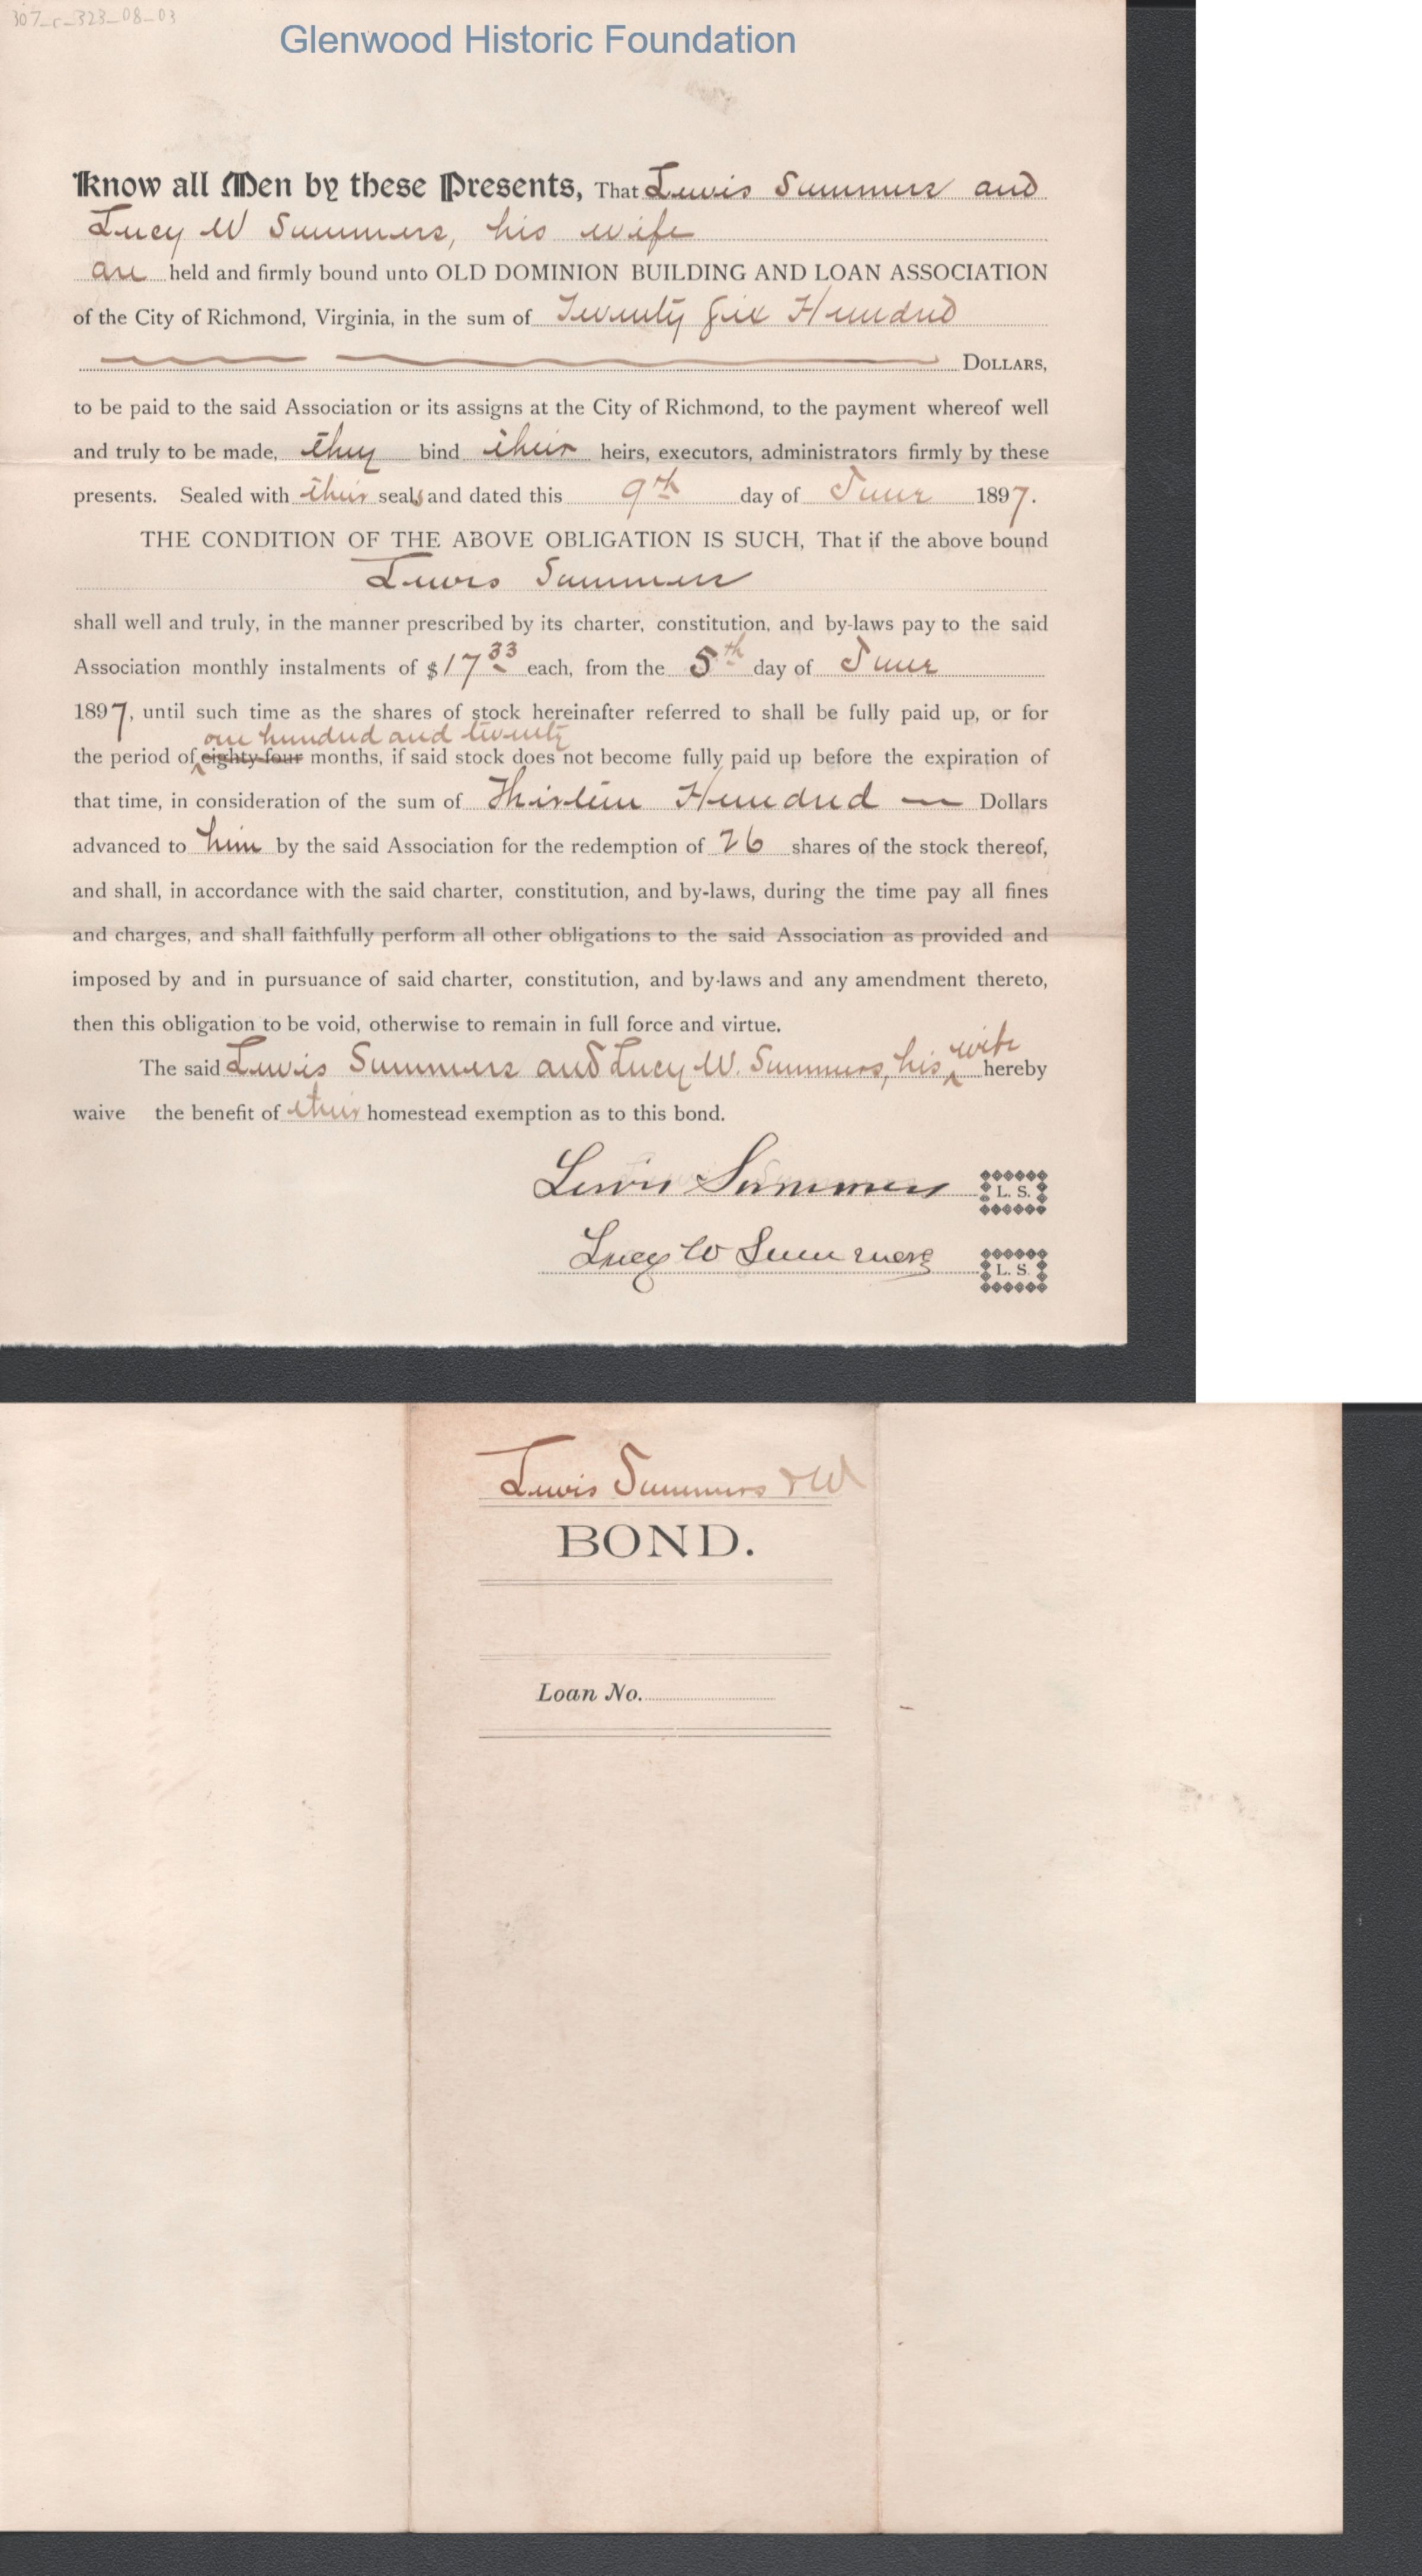 307_c_323_08_03
Glenwood Historic Foundation
Know all Men by these Presents, That Lewis Summers and
Lucy W Summers, his wife
are held and firmly bound unto OLD DOMINION BUILDING AND LOAN ASSOCIATION
of the City of Richmond, Virginia, in the sum of Twenty Six Hundred
DOLLARS,
to be paid to the said Association or its assigns at the City of Richmond, to the payment whereof well
and truly to be made, they bind their heirs, executors, administrators firmly by these
presents. Sealed with their seals and dated this 9th day of June 1897.
THE CONDITION OF THE ABOVE OBLIGATION IS SUCH, That if the above bound
Lewis Summers
shall well and truly, in the manner prescribed by its charter, constitution, and by-laws pay to the said
Association monthly instalments of $17 33 each, from the 5th day of June
1897, until such time as the shares of stock hereinafter referred to shall be fully paid up, or for
one hundred and twenty
the period of eighty-four months, if said stock does not become fully paid up before the expiration of
that time, in consideration of the sum of Thirteen Hundred — Dollars
advanced to him by the said Association for the redemption of 26 shares of the stock thereof,
and shall, in accordance with the said charter, constitution, and by-laws, during the time pay all fines
and charges, and shall faithfully perform all other obligations to the said Association as provided and
imposed by and in pursuance of said charter, constitution, and by-laws and any amendment thereto,
then this obligation to be void, otherwise to remain in full force and virtue.
The said Lewis Summers and Lucy W. Summers, his wife hereby
waive the benefit of their homestead exemption as to this bond.
Lewis Summers L. S.
Lucy W Summers L. S.
Lewis Summers & W
BOND.
Loan No.